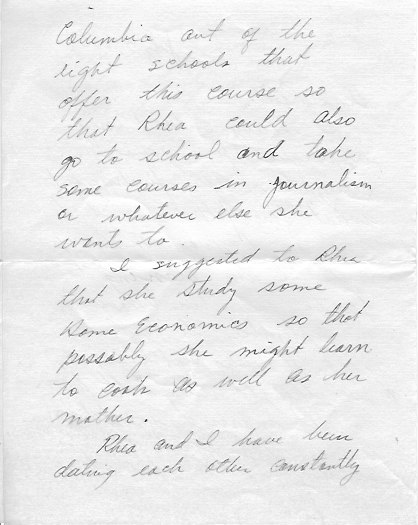 Columbia out of the
eight schools that
offer this course so
that Rhea could also
go to school and take
some courses in journalism
or whatever else she
wants to.
I suggested to Rhea
that she study some
Home Economics so that
possably she might learn
to cook as well as her
mother.
Rhea and I have been
dating each other constantly